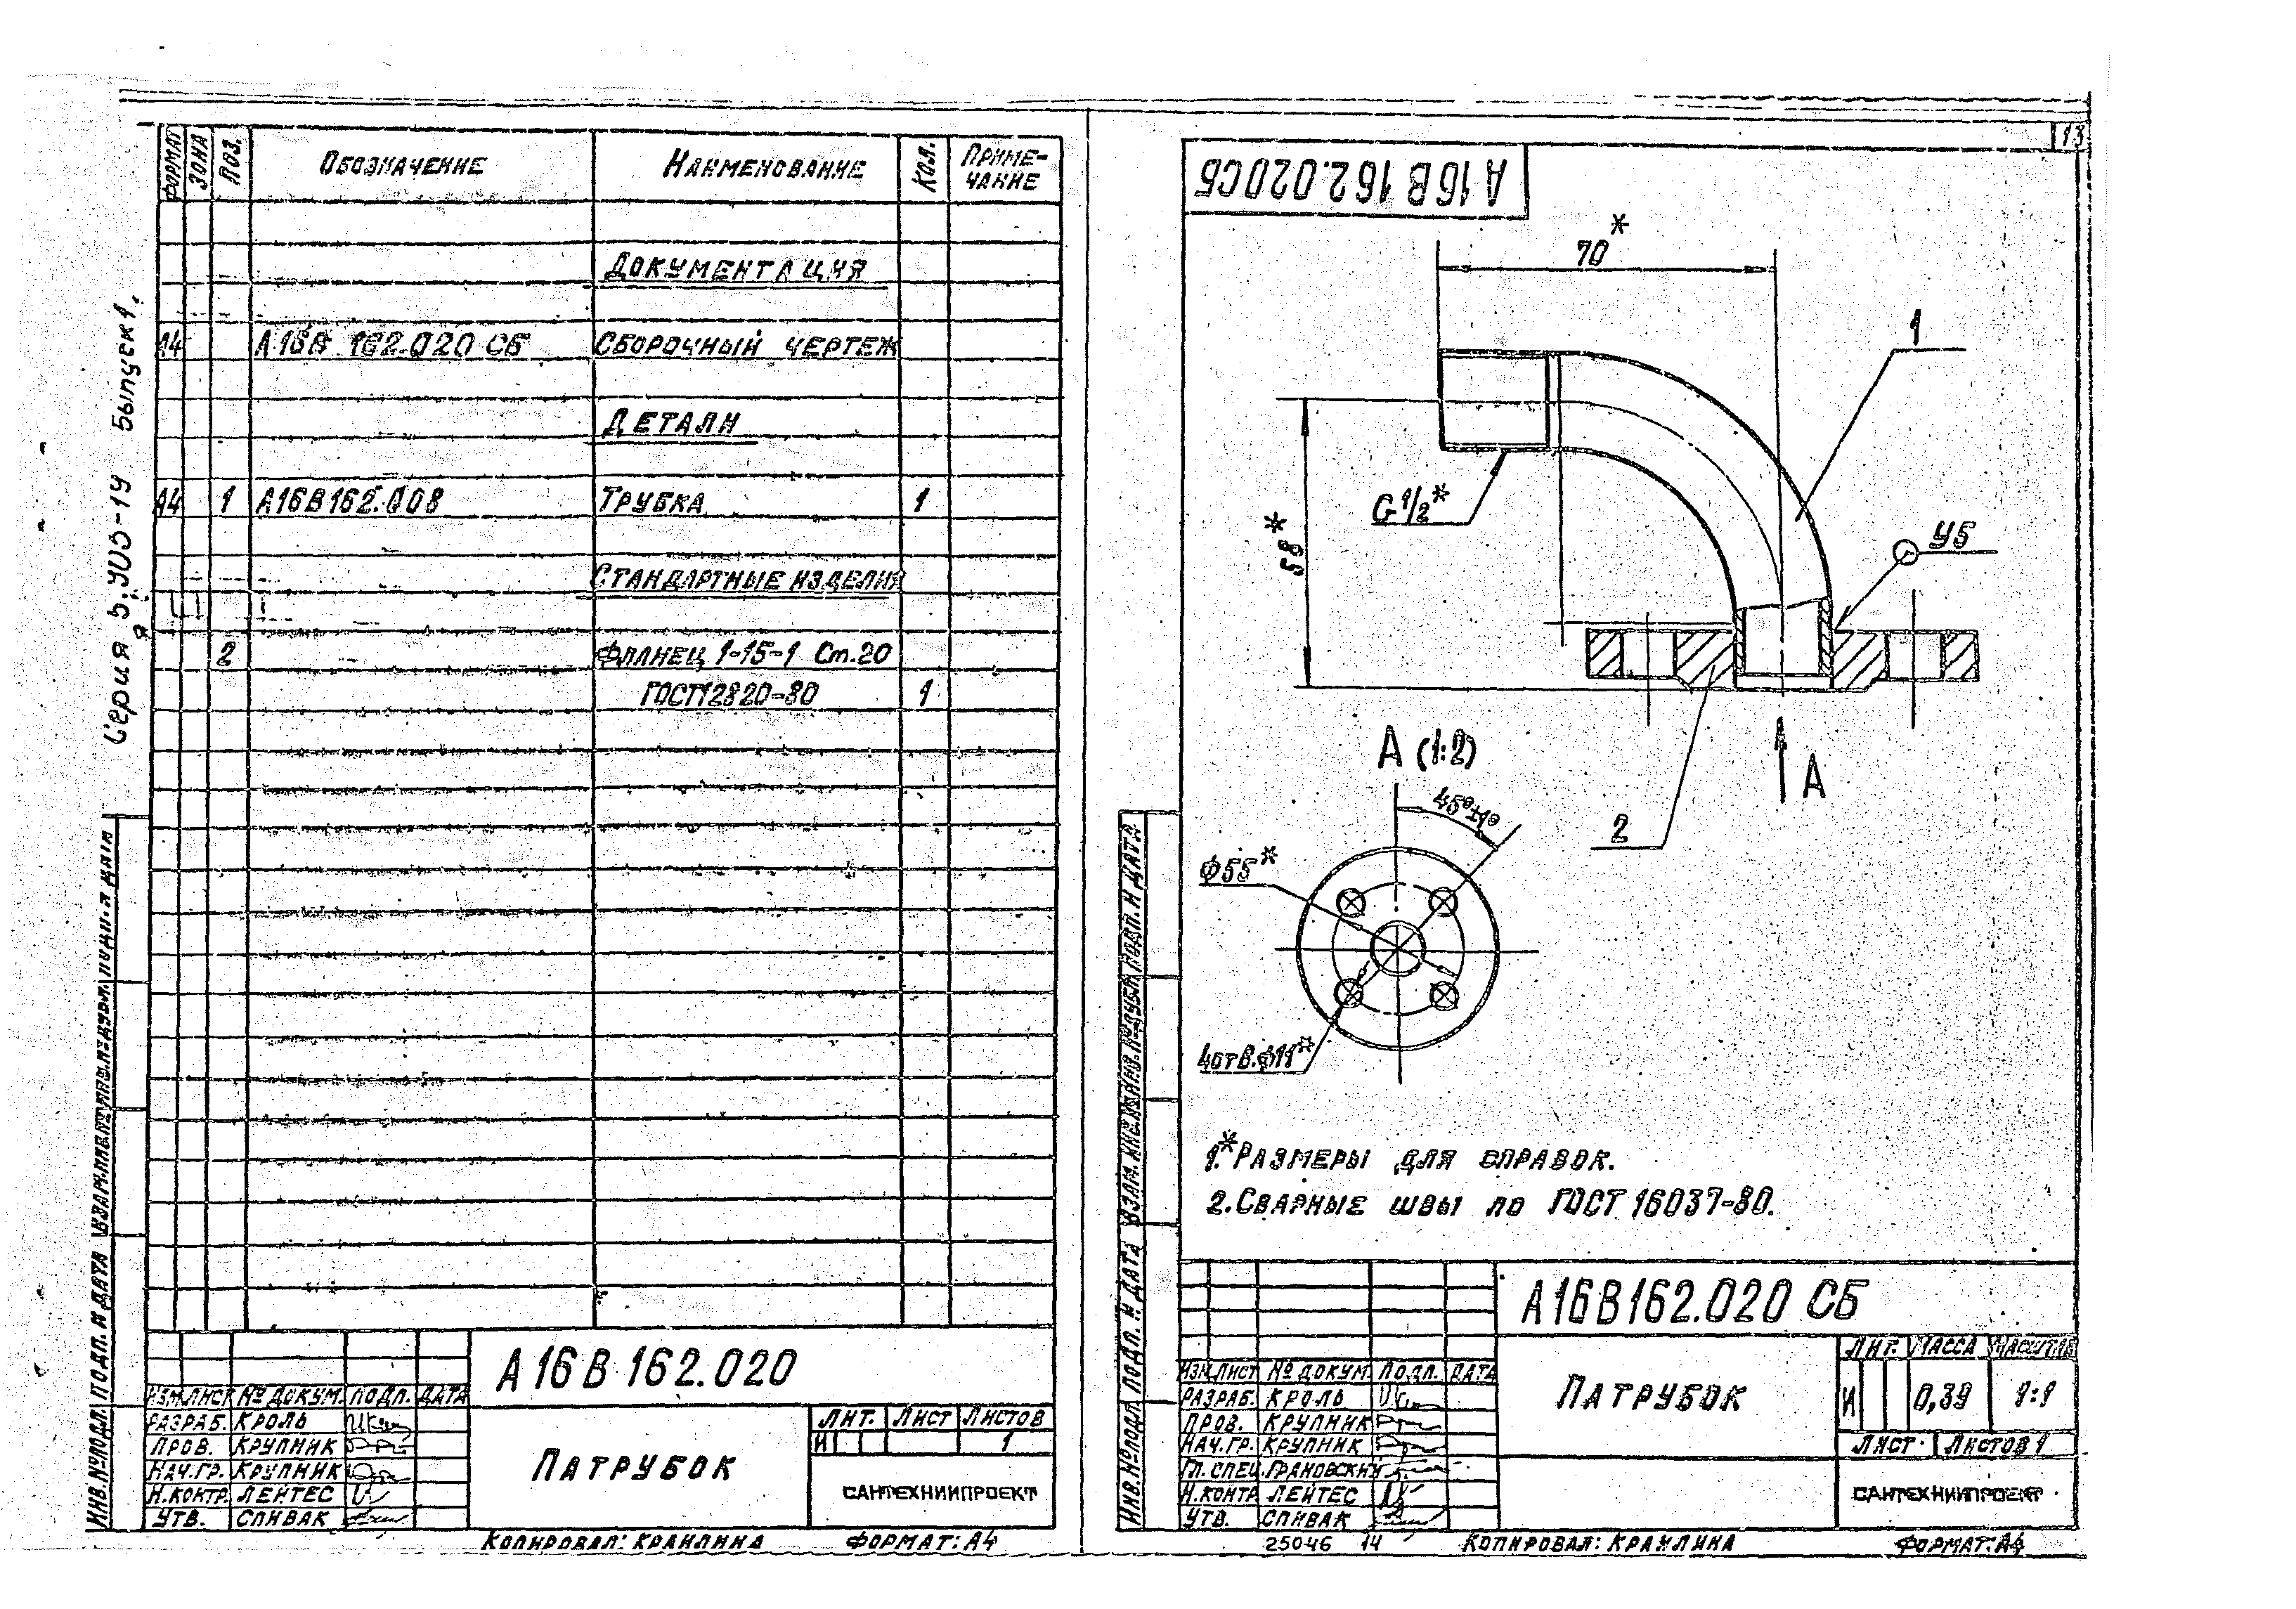 Серия 5.903-14 Выпуск 1.
ФОРМАТ ЗОНА ПОЗ. ОБОЗНАЧЕНИЕ НАИМЕНОВАНИЕ КОЛ. ПРИМЕ-
ЧАНИЕ
ДОКУМЕНТАЦИЯ
А4 А16В 162.020 СБ СБОРОЧНЫЙ ЧЕРТЕЖ
ДЕТАЛИ
А4 1 А16В162.008 ТРУБКА 1
СТАНДАРТНЫЕ ИЗДЕЛИЯ
2 ФЛАНЕЦ 1-15-1 Ст.20
ГОСТ12820-80 1
ИНВ.№ПОДЛ. ПОДП. И ДАТА ВЗАМ.ИНВ.№ ИНВ.№ДУБЛ. ПОДП. И ДАТА
А16В 162.020
ИЗМ. ЛИСТ № ДОКУМ. ПОДП. ДАТА
РАЗРАБ. КРОЛЬ
ПРОВ. КРУПНИК
НАЧ.ГР. КРУПНИК
Н.КОНТР. ЛЕЙТЕС
УТВ. СПИВАК
ПАТРУБОК
ЛИТ. ЛИСТ ЛИСТОВ
И 1
САНТЕХНИИПРОЕКТ
КОПИРОВАЛ: КРАИЛИНА ФОРМАТ: А4
13
А16В 162.020СБ
70*
1
58*
G1/2*
У5
А (1:2)
А
2
45°±1°
ф55*
4отв.ф11*
1.*РАЗМЕРЫ ДЛЯ СПРАВОК.
2.СВАРНЫЕ ШВЫ ПО ГОСТ 16037-80.
ИНВ.№ПОДЛ. ПОДП. И ДАТА ВЗАМ.ИНВ.№ ИНВ.№ДУБЛ. ПОДП. И ДАТА
А16В162.020 СБ
ИЗМ. ЛИСТ № ДОКУМ. ПОДП. ДАТА
РАЗРАБ. КРОЛЬ
ПРОВ. КРУПНИК
НАЧ.ГР. КРУПНИК
ГЛ. СПЕЦ. ГРАНОВСКИЙ
Н.КОНТР ЛЕЙТЕС
УТВ. СПИВАК
ПАТРУБОК
ЛИТ. МАССА МАСШТАБ
И 0,39 1:1
ЛИСТ ЛИСТОВ 1
САНТЕХНИИПРОЕКТ
25046 14 КОПИРОВАЛ: КРАИЛИНА ФОРМАТ: А4